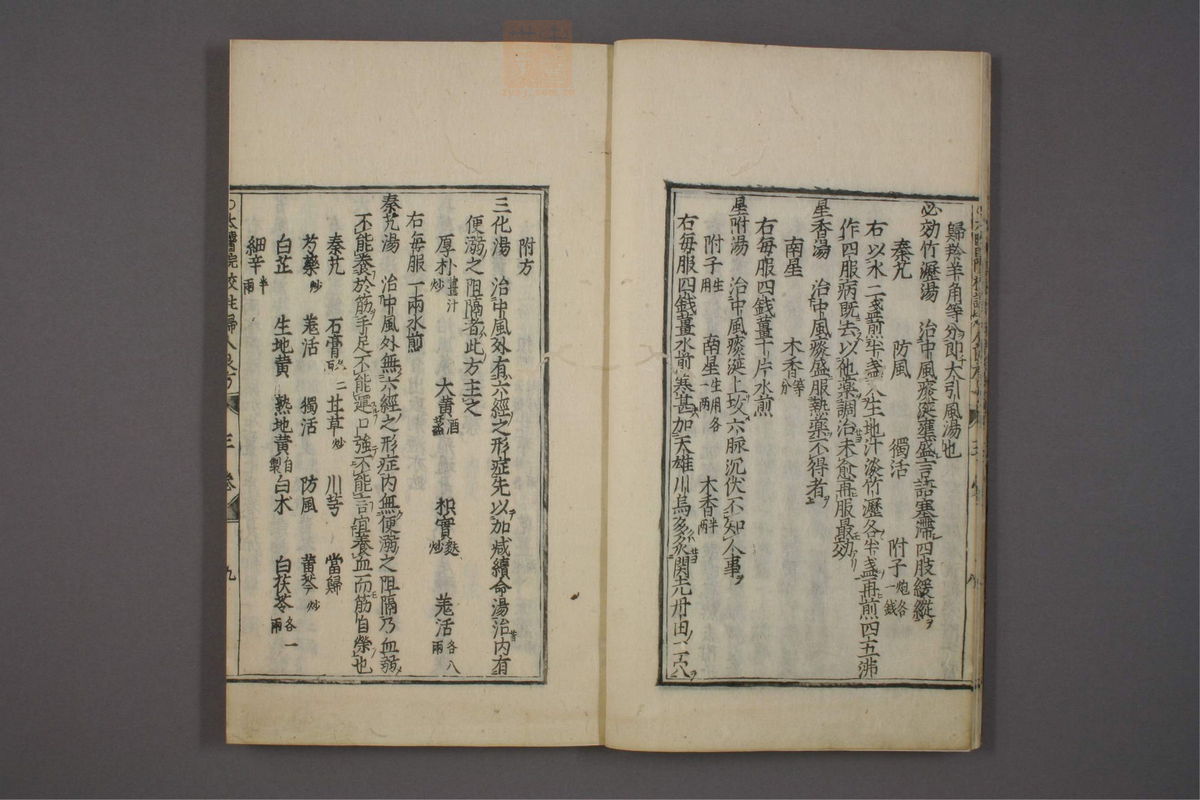 歸羚羊角等分即大引風湯也
必効竹瀝湯 治中風痰涎壅盛言語蹇滯四肢緩縱
秦艽 防風 獨活 附子炮各一錢
右以水二盞煎半盞入生地汁淡竹瀝各半盞再煎四五沸
作四服病既去以他藥調治未愈再服最効
星香湯 治中風痰盛服熱藥不得者
南星 木香等分
右每服四錢薑十片水煎
星附湯 治中風痰涎上攻六脉沉伏不知人事
附子生用 南星生用各一兩 木香半兩
右每服四錢薑水煎寒甚加天雄川烏多炙関元丹田二穴
附方
三化湯 治中風外有六經之形症先以加减續命湯治内有
便溺之阻隔者此方主之
厚朴薑汁炒 大黃酒蒸 枳實麩炒 羗活各八兩
右每服一兩水煎
秦艽湯 治中風外無六經之形症内無便溺之阻隔乃血弱
不能養於筋手足不能運口強不能言宜養血而筋自榮也
秦艽 石膏二 甘草炒 川芎 當歸
芍藥炒 羗活 獨活 防風 黃芩炒
白芷 生地黃 熟地黃自製 白朮 白茯苓各一兩
細辛半兩
○太醫院校註婦人良方 三卷 九